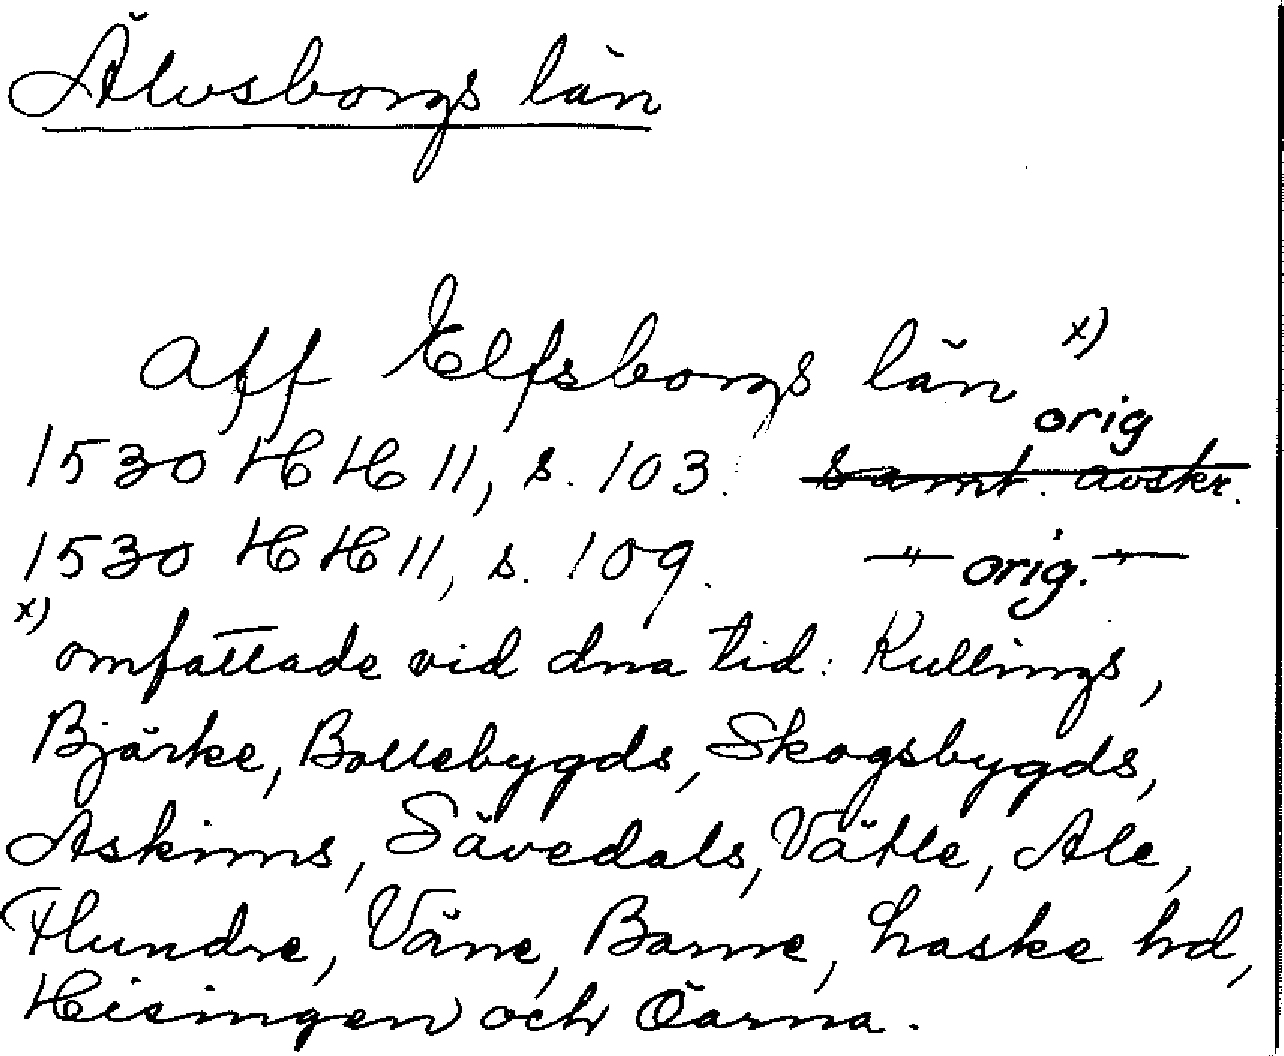 Älvsborgs län
Aff Elfsborgs län x)
orig
1530 HH 11, s. 103. samt. avskr.
1530 HH 11, s. 109. —"— orig. —"—
x) omfattade vid dna tid: Kullings,
Bjärke, Bollebygds, Skogsbygds,
Askims, Sävedals, Vätle, Ale,
Flundre, Väne, Barne, Laske hd,
Hisingen och Öarna.